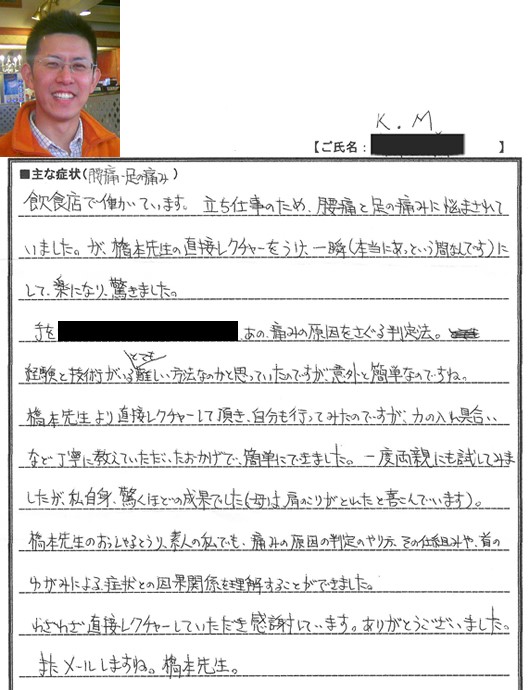 K.M
【ご氏名: 】
■主な症状(腰痛・足の痛み)
飲食店で働いています。立ち仕事のため、腰痛と足の痛みに悩まされて
いました。が、橋本先生の直接レクチャーをうけ、一瞬(本当にあっという間なんです)に
して、楽になり、驚きました。
手を あの、痛みの原因をさぐる判定法。
経験と技術がいるとても難しい方法なのかと思っていたのですが、意外と簡単なのですね。
橋本先生より直接レクチャーして頂き、自分も行ってみたのですが、力の入れ具合い
など丁寧に教えていただいたおかげで、簡単にできました。一度両親にも試してみま
したが、私自身、驚くほどの成果でした(母は、肩のこりがとれたと喜こんでいます)。
橋本先生のおっしゃるとうり、素人の私でも、痛みの原因の判定のやり方、その仕組みや、首の
ゆがみによる、症状との因果関係を理解することができました。
わざわざ直接レクチャーしていただき感謝しています。ありがとうございました。
またメールしますね。橋本先生。